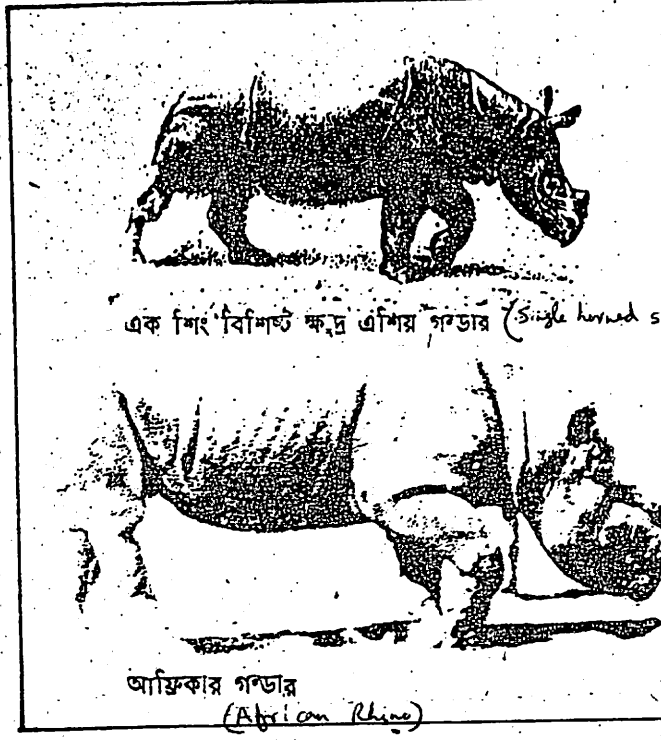 এক শিং বিশিষ্ট ক্ষুদ্র এশিয় গন্ডার (Single horned s
আফ্রিকার গন্ডার
(African Rhino)